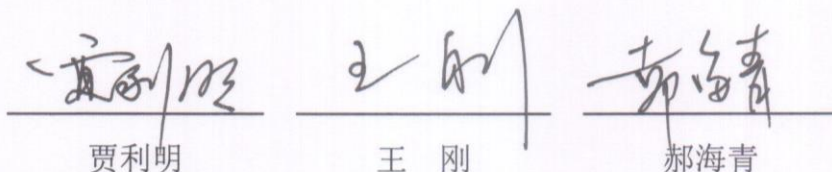 贾利明 王刚 郝海青
贾利明 王 刚 郝海青